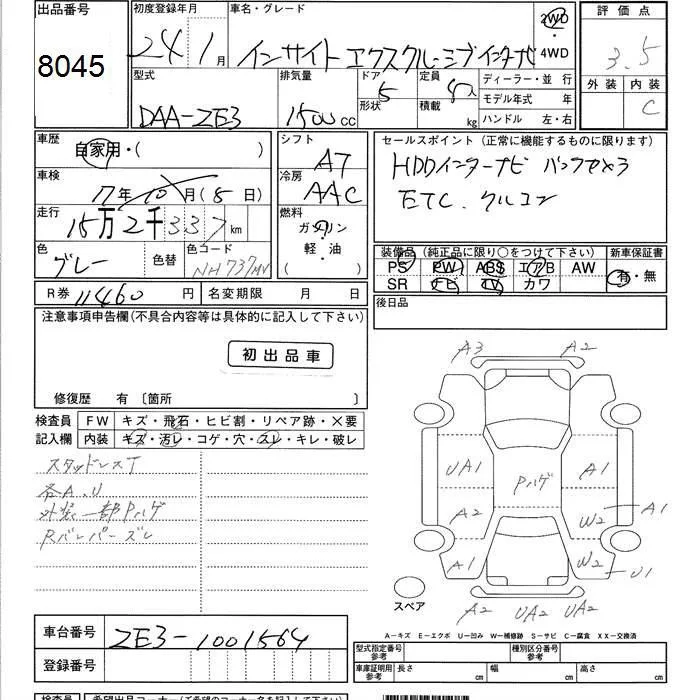 出品番号 初度登録年月 車名・グレード 2WD 評価点
8045 24 1月 インサイト エクスクルーシブ インターナビ 4WD 3.5
型式 排気量 ドア 5 定員 ディーラー・並行 外装 内装
DAA-ZE3 1500cc 形状 積載 kg モデル年式 年 C
ハンドル 左・右
車歴 シフト セールスポイント(正常に機能するものに限ります)
自家用・( ) AT HDDインターナビ バックカメラ
車検 冷房 ETC. クルコン
17年10月(8日) AAC
走行 燃料 装備品(純正品に限り○をつけて下さい) 新車保証書
15万2千337km ガソリン PS PW ABS エアB AW 有・無
色 グレー 色替 色コード NH737MV 軽・油 SR ナビ TV カワ
( )
R券 11460円 名変期限 月 日 後日品
注意事項申告欄(不具合内容等は具体的に記入して下さい)
初出品車
修復歴 有 〔箇所 〕
検査員 FW キズ・飛石・ヒビ割・リペア跡・×要
記入欄 内装 キズ・汚レ・コゲ・穴・スレ・キレ・破レ
スタッドレスT
各A.U
外装一部Pハゲ
Rバンパーズレ
A3 A2
UA1 Pハゲ A1
A2 W2 A1
A1 W2 U1
スペア A2 UA2 UA2
A-キズ E-エクボ U-凹み W-補修跡 S-サビ C-腐食 XX-交換済
車台番号 ZE3-1001564 型式指定番号 参考 種別区分番号 参考
登録番号 車庫証明用 参考 長さ cm 幅 cm 高さ cm
検査員 希望出品コーナー(ご希望のコーナー名を記入して下さい)